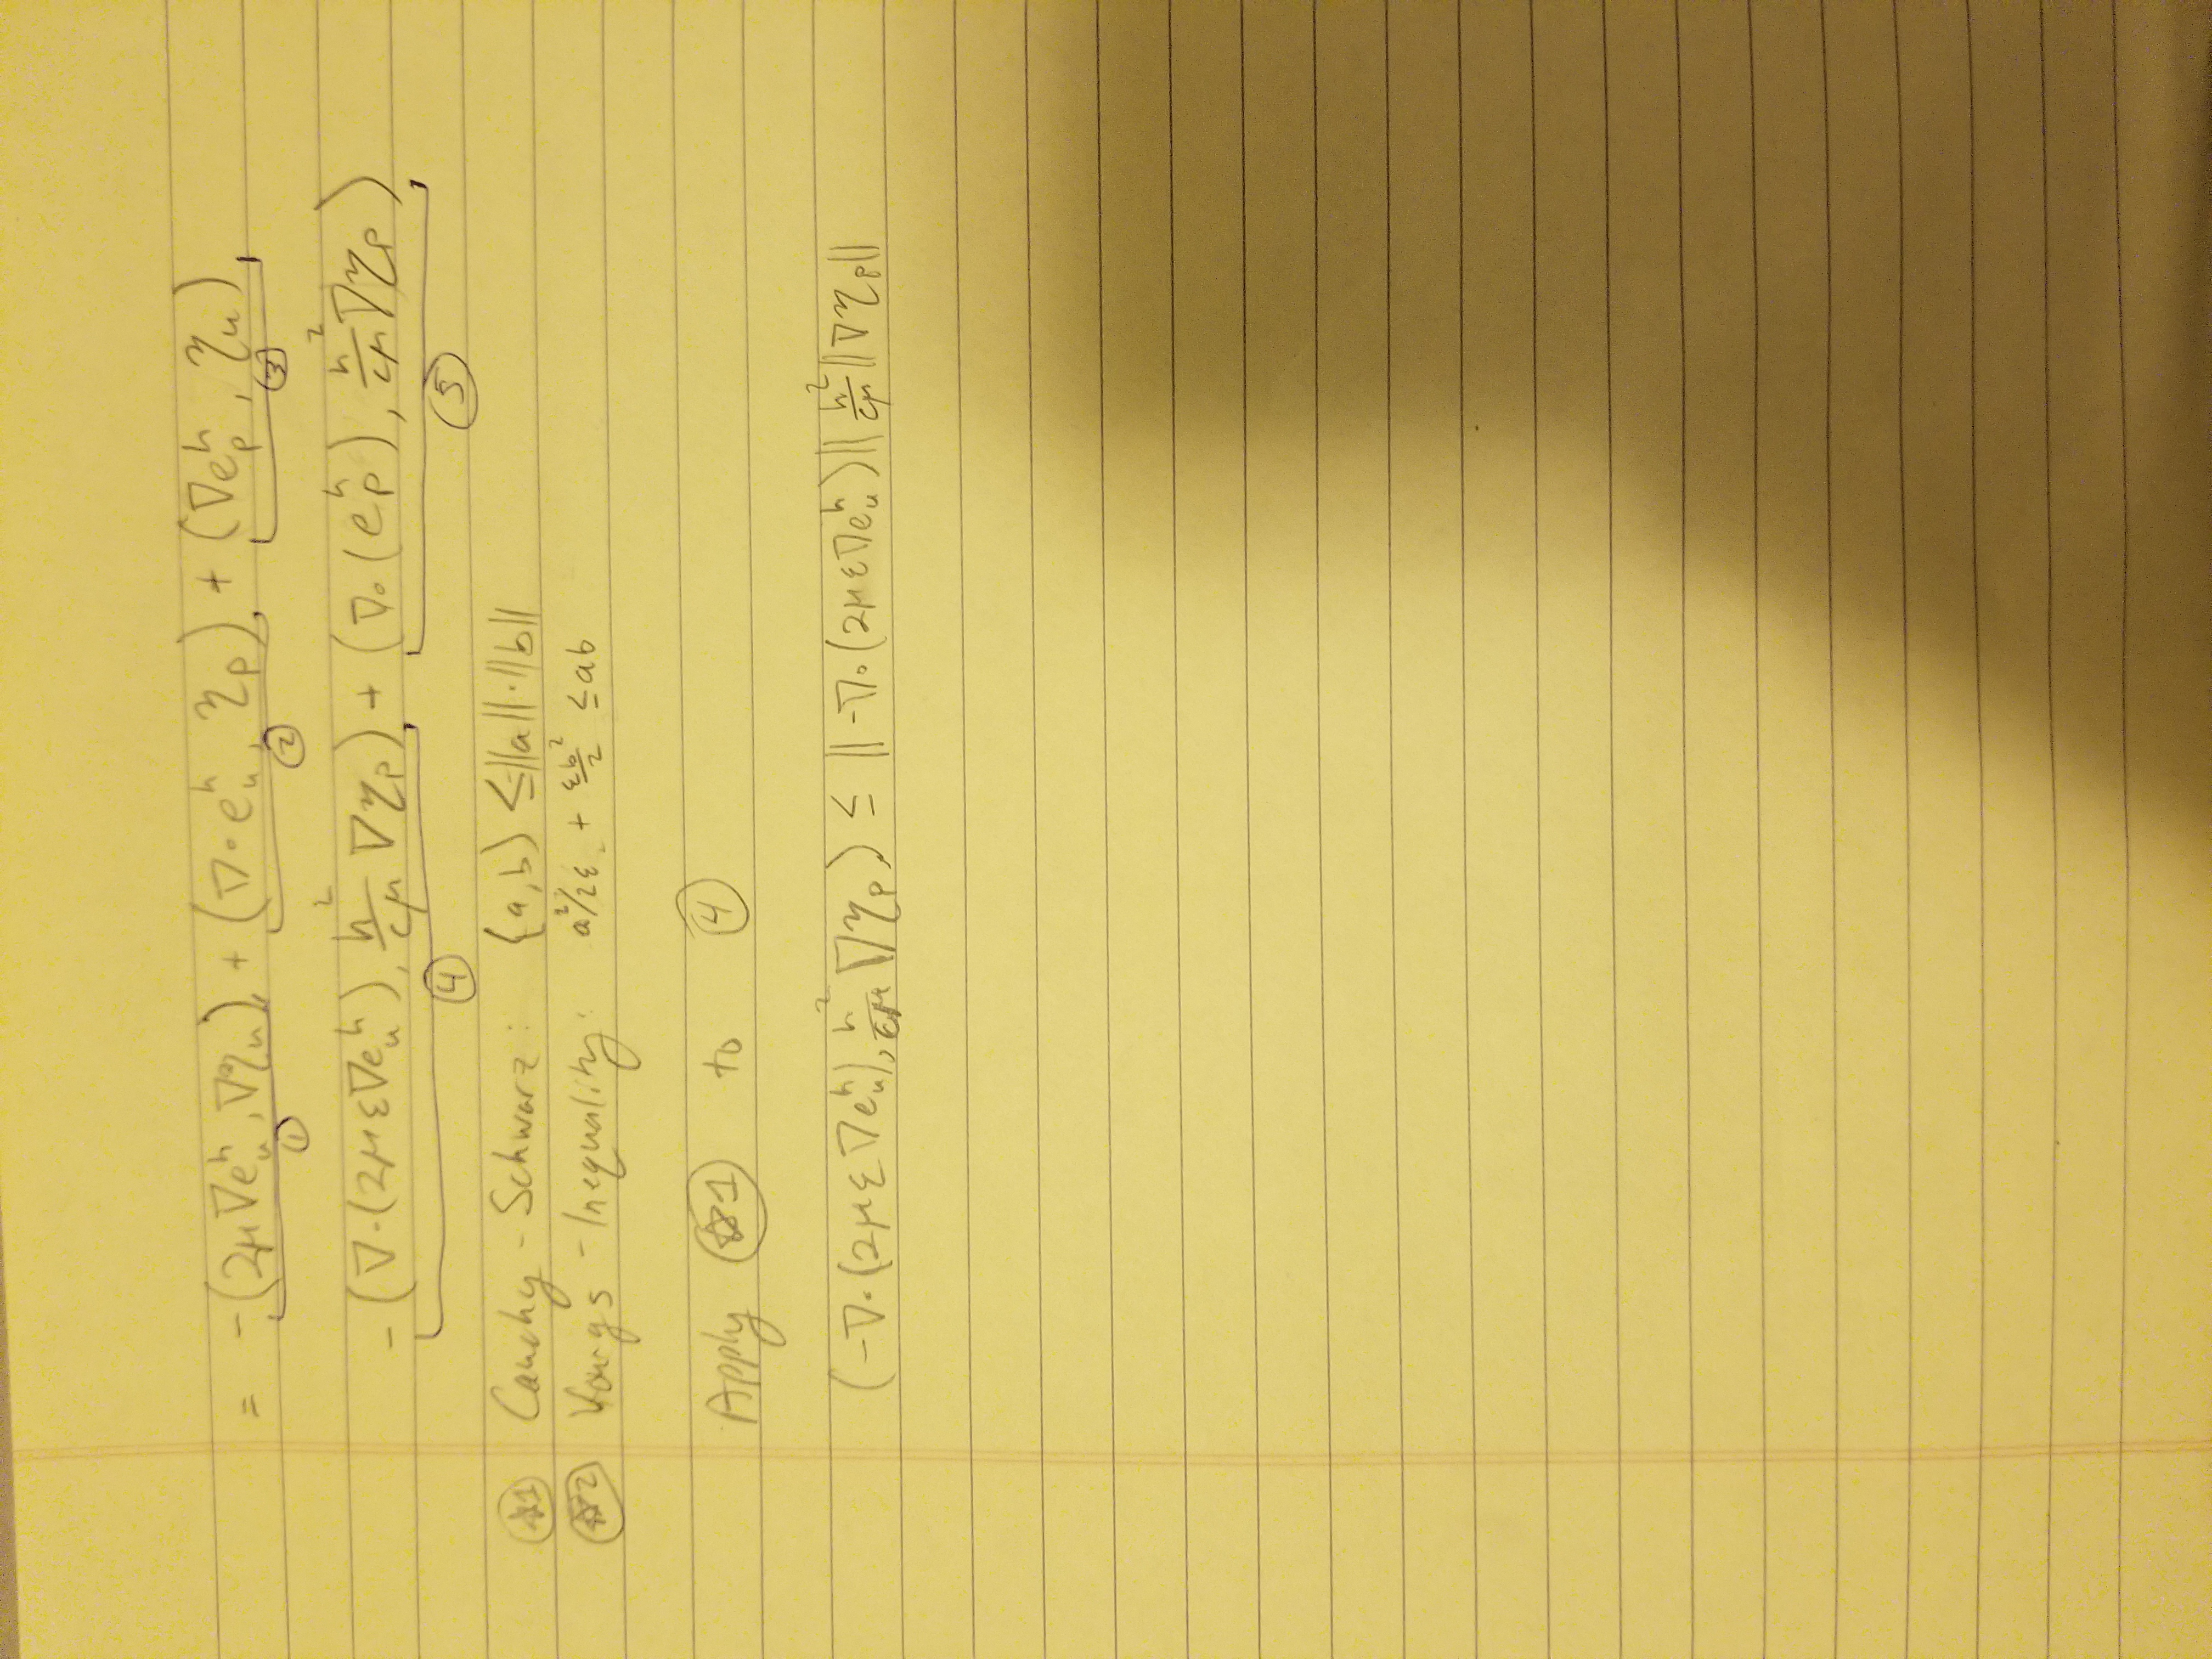 = -(2μ∇eᵤʰ, ∇ηᵤ) + (∇·eᵤʰ, ηₚ) + (∇eₚʰ, ηᵤ)
① ② ③
-(∇·(2με∇eᵤʰ), h²/cμ ∇ηₚ) + (∇·(eₚʰ), h²/cμ ∇ηₚ)
④ ⑤
☆1 Cauchy-Schwarz: (a,b) ≤ ||a||·||b||
☆2 Youngs-Inequality: a²/2ε + εb²/2 ≤ ab
Apply ☆1 to ④
(-∇·(2με∇eᵤʰ), h²/cμ ∇ηₚ) ≤ ||-∇·(2με∇eᵤʰ)|| h²/cμ ||∇ηₚ||